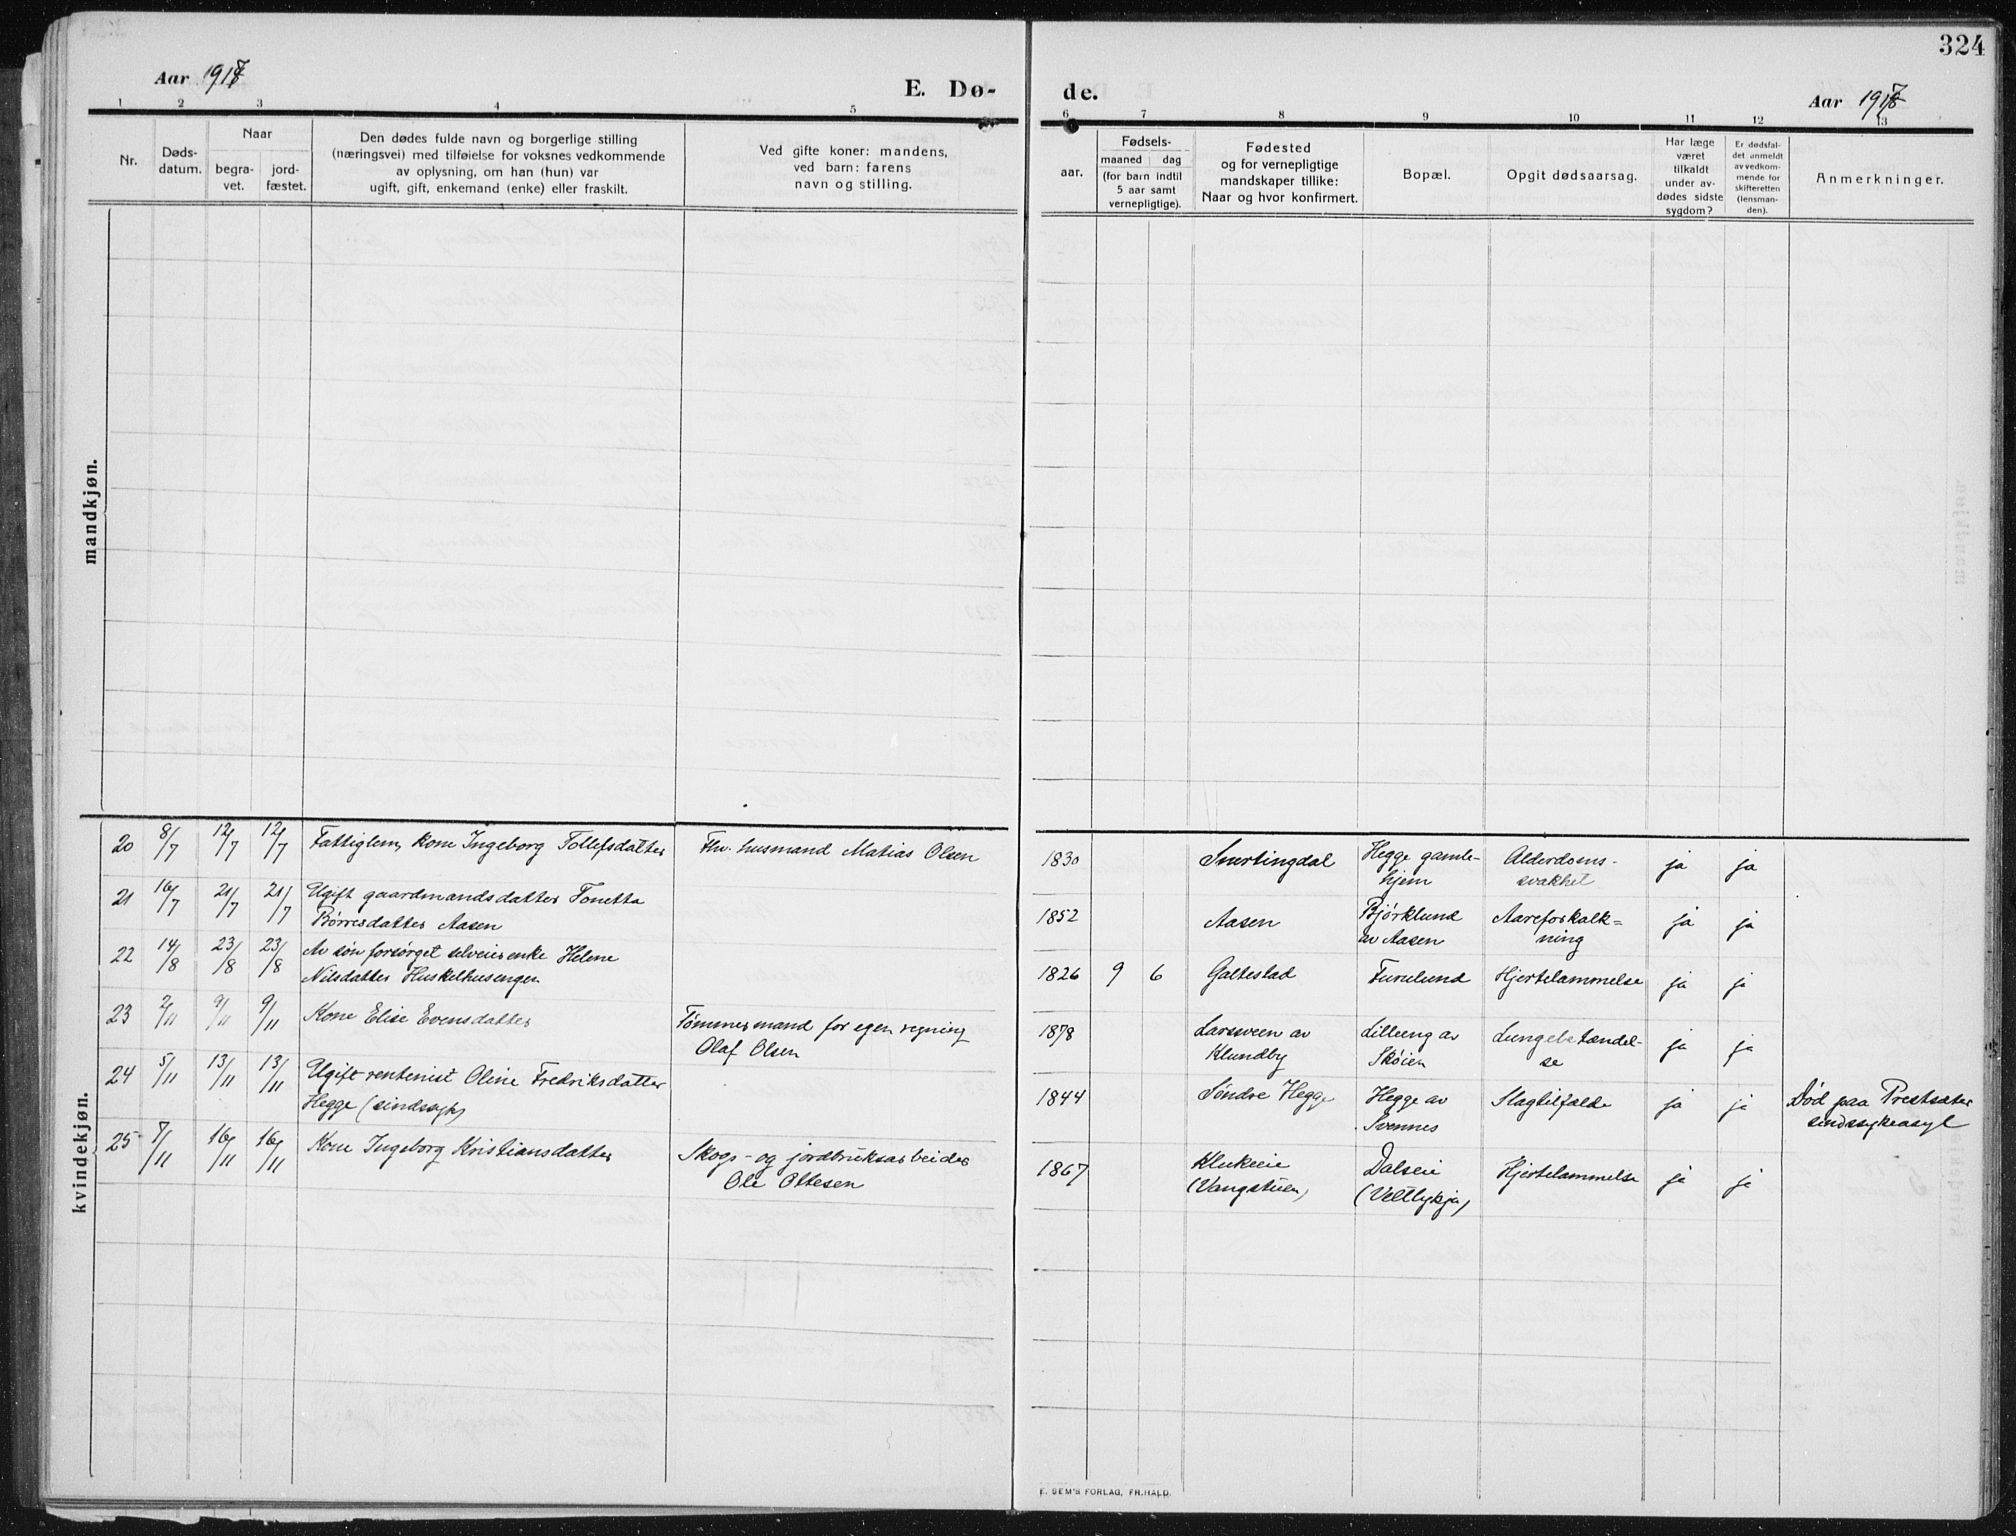 324
Aar 1917
E. Dø-
de.
Aar 1917
1 2 3 4 5 6 7 8 9 10 11 12 13
Nr.
Døds-
datum.
Naar
begra-
vet.
jord-
fæstet.
Den dødes fulde navn og borgerlige stilling
(næringsvei) med tilføielse for voksnes vedkommende
av oplysning, om han (hun) var
ugift, gift, enkemand (enke) eller fraskilt.
Ved gifte koner: mandens,
ved barn: farens
navn og stilling.
aar.
Fødsels-
maaned dag
(for barn indtil
5 aar samt
vernepligtige).
Fødested
og for vernepligtige
mandskaper tillike:
Naar og hvor konfirmert.
Bopæl.
Opgit dødsaarsag.
Har læge
været
tilkaldt
under av-
dødes sidste
sygdom?
Er dødsfal-
det anmeldt
av vedkom-
mende for
skifteretten
(lensman-
den).
Anmerkninger.
mandkjøn.
kvindekjøn.
20 8/7 12/7 12/7 Fattiglem, kone Ingeborg Tollefsdatter Fhv. husmand Matias Olsen 1830 Snertingdal Hegge gamle- Alderdoms- ja ja
hjem svakhet
21 16/7 21/7 21/7 Ugift gaardmandsdatter Tonetta 1852 Aasen Bjørklund Aareforkalk- ja ja
Børresdatter Aasen av Aasen ning
22 14/8 23/8 23/8 Av søn forsørget selveierenke Helene 1826 9 6 Galtestad Furulund Hjertelammelse ja ja
Nilsdatter Huskelhusengen
23 2/11 9/11 9/11 Kone Elise Evensdatter Tømmermand for egen regning 1878 Larsveen av Lilleeng av Lungebetændel- ja ja
Olaf Olsen Klundby Skøien se
24 5/11 13/11 13/11 Ugift rentenist Oline Fredriksdatter 1844 Søndre Hegge Hegge av Slagtilfælde ja ja Død paa Prestsæter
Hegge (sindssyk) Svennes sindssykeasyl
25 7/11 16/11 16/11 Kone Ingeborg Kristiansdatter Skogs- og jordbruksarbeider 1867 Klukeeie Dalseie Hjertelammelse ja ja
Ole Ottesen (Vangstuen) (Veltlykja)
E. SEM'S FORLAG, FR.HALD.